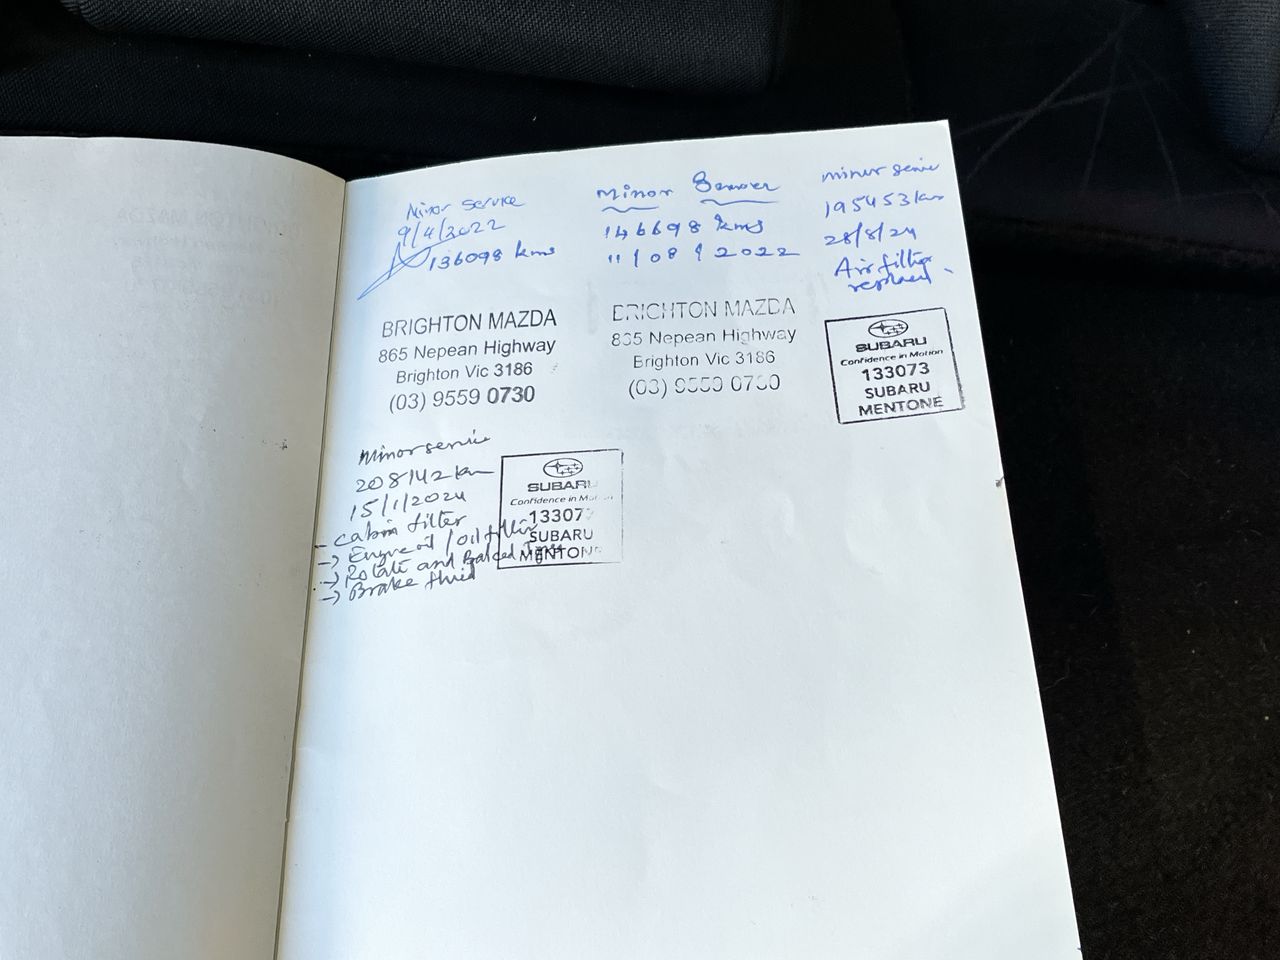 Minor service
9/4/2022
136098 kms
BRIGHTON MAZDA
865 Nepean Highway
Brighton Vic 3186
(03) 9559 0730
Minor
146698 kms
11/08/2022
BRIGHTON MAZDA
865 Nepean Highway
Brighton Vic 3186
(03) 9559 0730
minor servie
195453 km
28/8/24
Air filter
SUBARU
Confidence in Motion
133073
SUBARU
MENTONE
Minor servie
208142 km
15/1/2024
- cabin filter
→ Engine oil / oil filter
→ Rotate and
→ Brake fluid
SUBARU
Confidence in Motion
133073
SUBARU
MENTONE